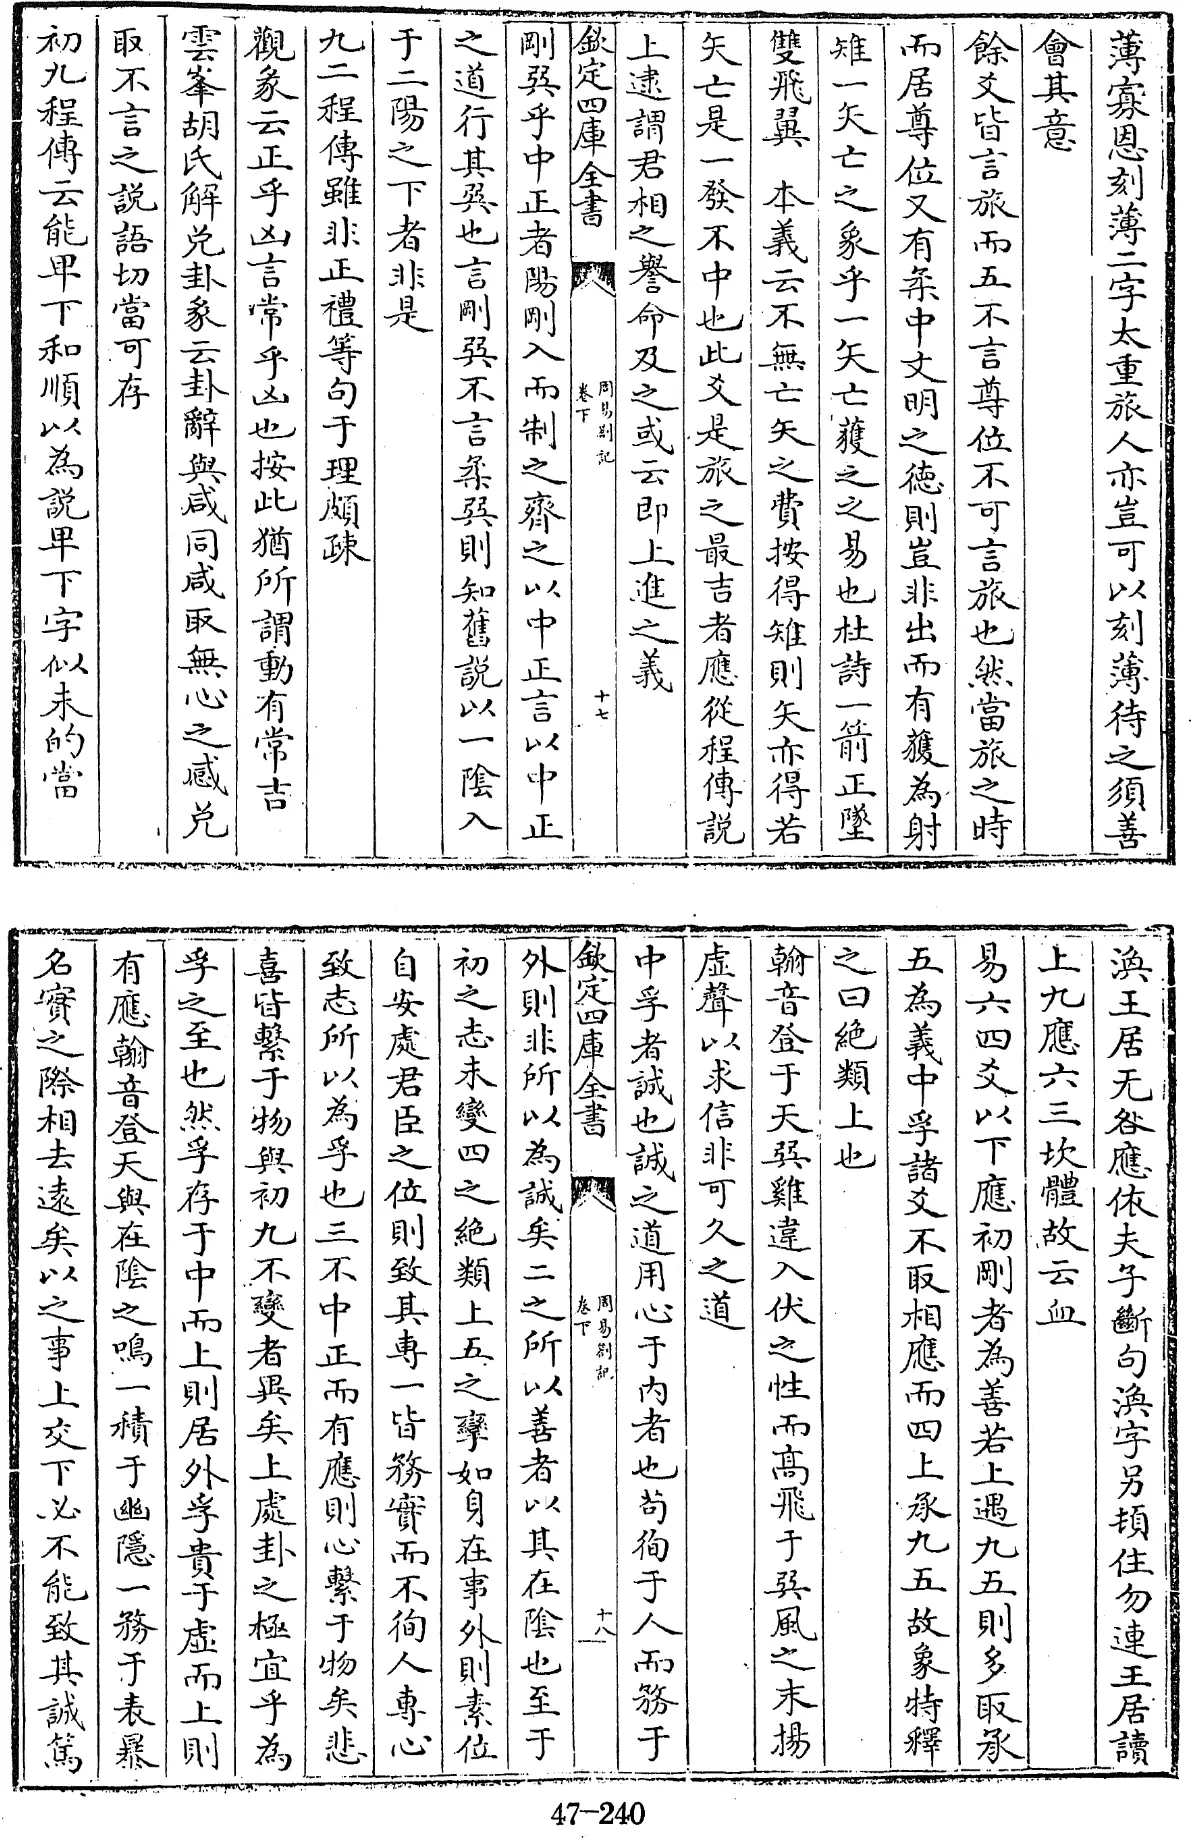 薄寡恩刻薄二字太重旅人亦豈可以刻薄待之須善
會其意
餘爻皆言旅而五不言尊位不可言旅也然當旅之時
而居尊位又有柔中文明之徳則豈非出而有獲為射
雉一矢亡之象乎一矢亡獲之之易也杜詩一箭正墜
雙飛翼　本義云不無亡矢之費按得雉則矢亦得若
矢亡是一發不中也此爻是旅之最吉者應從程傳説
上逮謂君相之譽命及之或云即上進之義
欽定四庫全書
周易劄記
卷下
十七
剛巽乎中正者陽剛入而制之齊之以中正言以中正
之道行其巽也言剛巽不言柔巽則知舊説以一陰入
于二陽之下者非是
九二程傳雖非正禮等句于理頗疎
觀彖云正乎凶言常乎凶也按此猶所謂動有常吉
雲峯胡氏解兌卦彖云卦辭與咸同咸取無心之感兌
取不言之説語切當可存
初九程傳云能卑下和順以為説卑下字似未的當
渙王居无咎應依夫子斷句渙字另頓住勿連王居讀
上九應六三坎體故云血
易六四爻以下應初剛者為善若上遇九五則多取承
五為義中孚諸爻不取相應而四上承九五故象特釋
之曰絶類上也
翰音登于天巽雞違入伏之性而高飛于巽風之末揚
虛聲以求信非可久之道
中孚者誠也誠之道用心于内者也苟徇于人而務于
欽定四庫全書
周易劄記
卷下
十八
外則非所以為誠矣二之所以善者以其在陰也至于
初之志未變四之絶類上五之攣如身在事外則素位
自安處君臣之位則致其專一皆務實而不徇人專心
致志所以為孚也三不中正而有應則心繫于物矣悲
喜皆繫于物與初九不變者異矣上處卦之極宜乎為
孚之至也然孚存于中而上則居外孚貴于虛而上則
有應翰音登天與在陰之鳴一積于幽隱一務于表暴
名實之際相去遠矣以之事上交下必不能致其誠篤
47-240